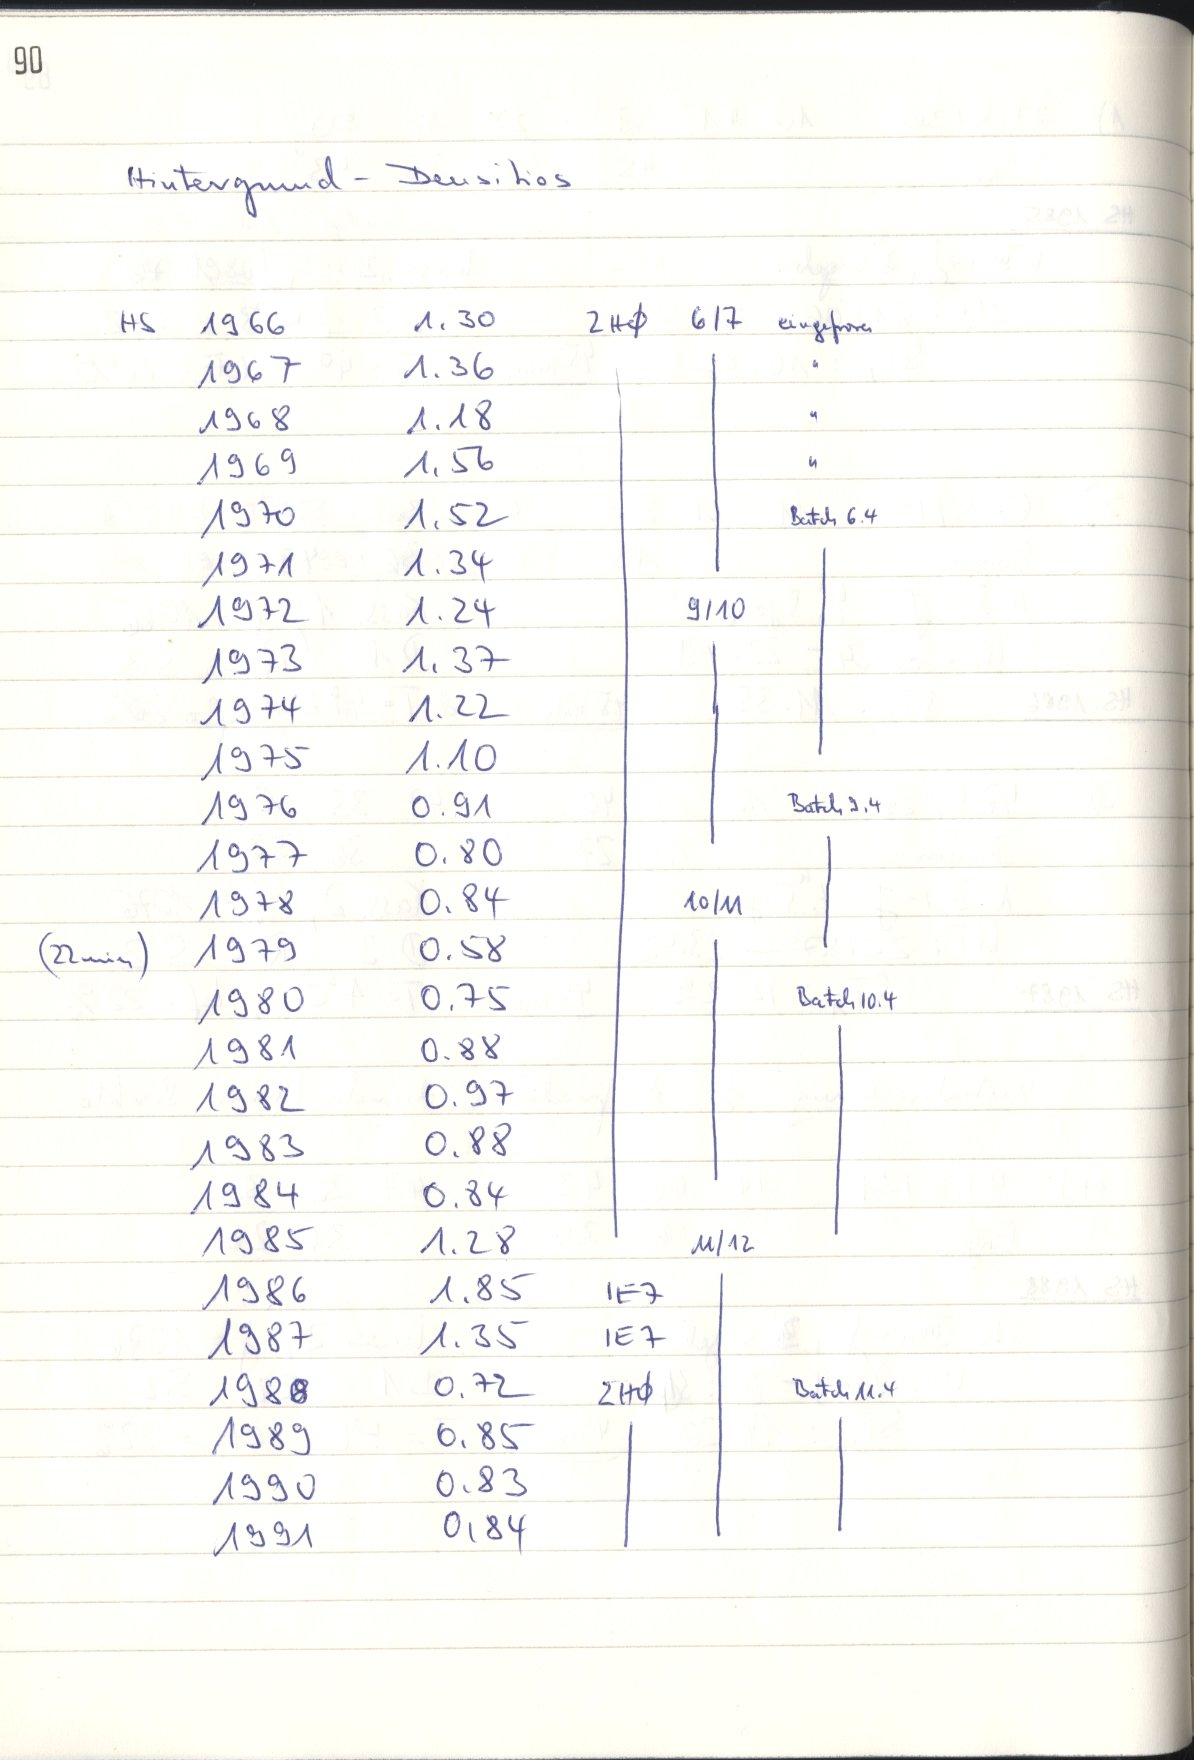 90
Hintergrund - Densitios
HS 1966 1.30 2HØ 6/7 eingefroren
1967 1.36 "
1968 1.18 "
1969 1.56 "
1970 1.52 Batch 6.4
1971 1.34
1972 1.24 9/10
1973 1.37
1974 1.22
1975 1.10
1976 0.91 Batch 9.4
1977 0.80
1978 0.84 10/11
(22min) 1979 0.58
1980 0.75 Batch 10.4
1981 0.88
1982 0.97
1983 0.88
1984 0.84
1985 1.28 11/12
1986 1.85 IE7
1987 1.35 IE7
1988 0.72 2HØ Batch 11.4
1989 0.85
1990 0.83
1991 0.84